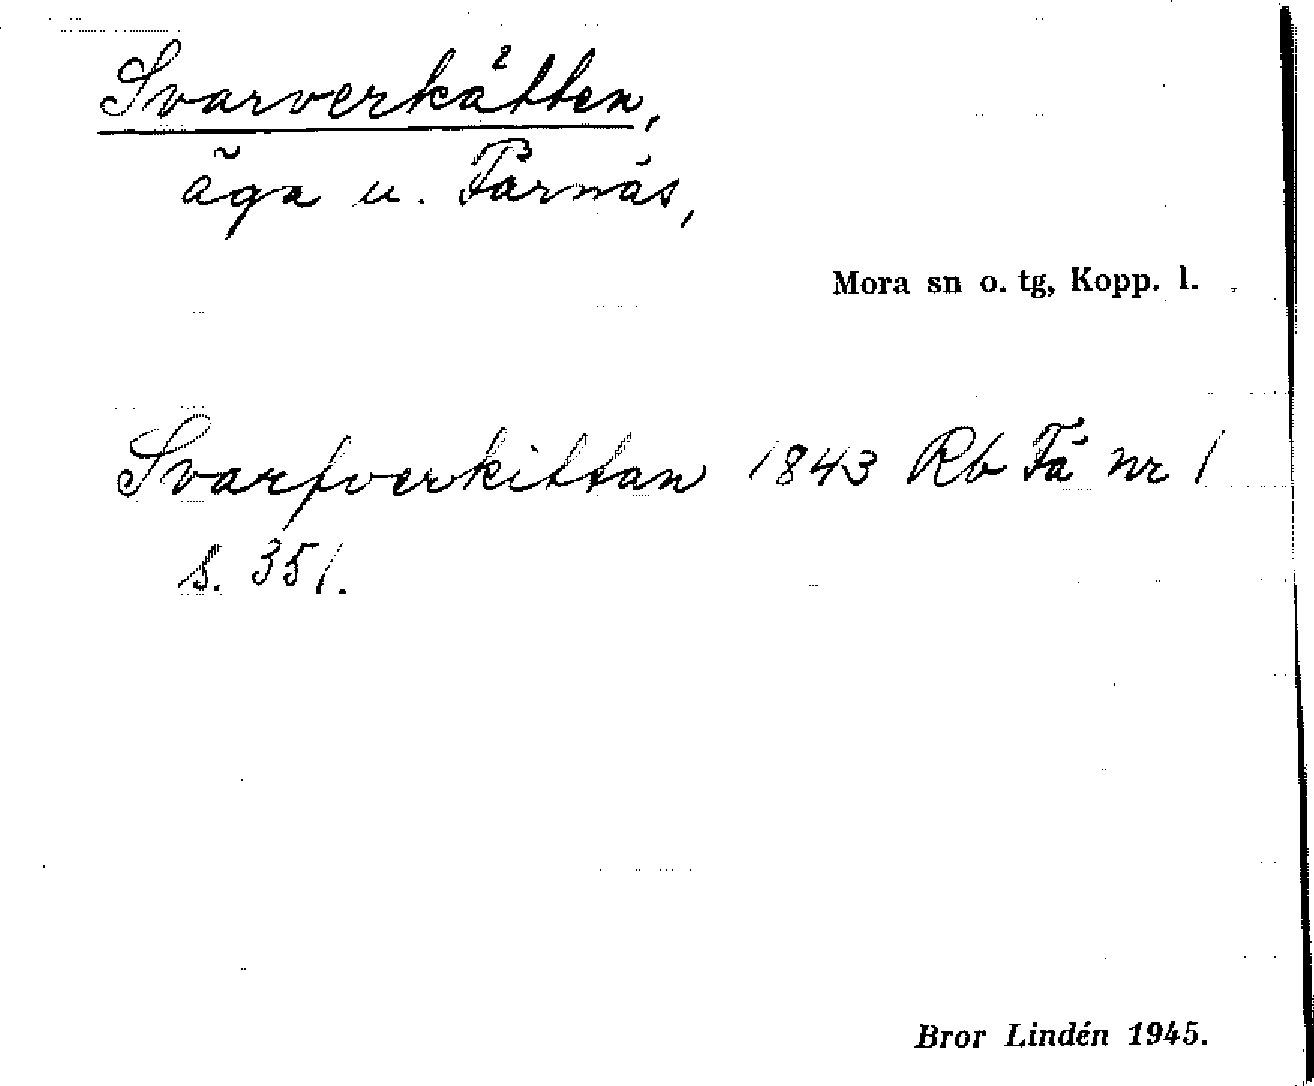 Svarverkätten,
äga u. Färnäs,
Mora sn o. tg, Kopp. l.
Svarfverkittan 1843 Rb Fä nr 1
s. 351.
Bror Lindén 1945.